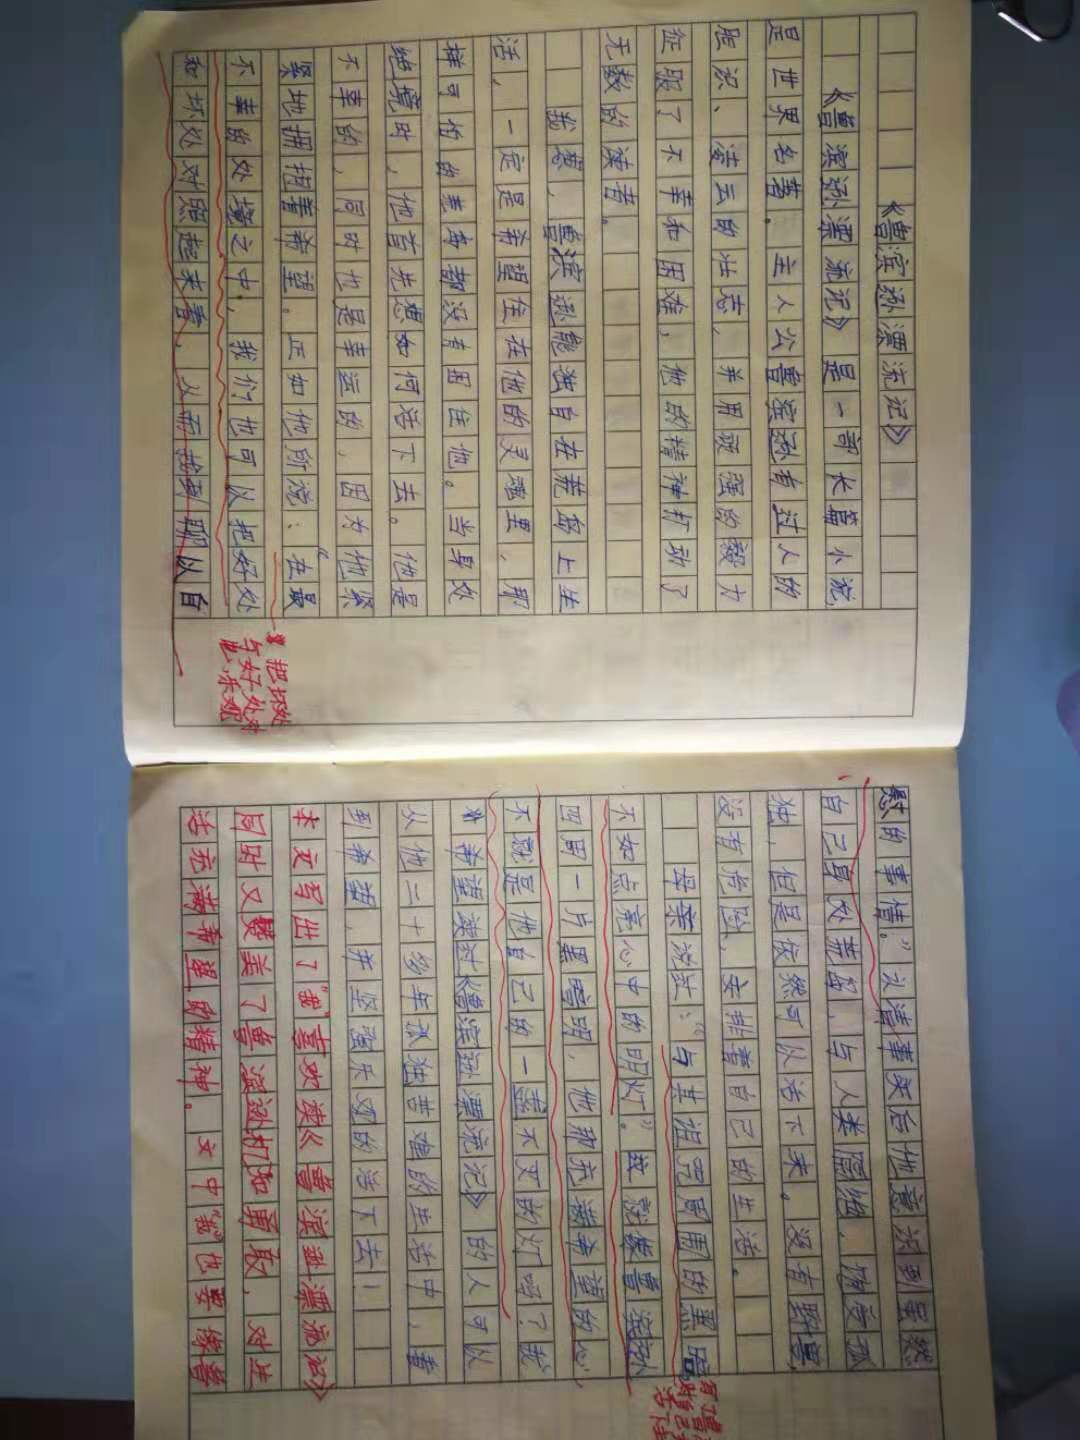 《鲁滨孙漂流记》
《鲁滨孙漂流记》是一部长篇小说
是世界名著。主人公鲁滨逊有过人的
胆识、凌云的壮志，并用顽强的毅力
征服了不幸和困难，他的精神打动了
无数的读者。
我想，鲁滨逊能独自在荒岛上生
活，一定是希望住在他的灵魂里，那
样可怕的意外都没有困住他。当身处
绝境时，他首先想如何活下去。他是
不幸的，同时也是幸运的，因为他紧
紧地拥抱着希望。正如他所说：“在最
不幸的处境之中，我们也可以把好处
和坏处对照起来看，从而找到聊以自
把坏处
与好处对
乐观
慰的事情。”认清事实后他意识到虽然
自己身处荒岛，与人类隔绝，饱受孤
独，但是依然可以活下来。没有野兽
没有危险，安排着自己的生活。
母亲说过：“与其诅咒周围的黑暗
不如点亮心中的明灯”。这就像鲁滨孙
四周一片黑暗时，他那充满希望的心
不就是他自己的一盏不灭的灯吗？我
希望读过《鲁滨逊漂流记》的人可以
从他二十多年孤独苦难的生活中，看
到希望，并坚强乐观的活下去！
本文写出了“我”喜欢读《鲁滨孙漂流记》
同时又赞美了鲁滨逊机智勇敢，对生
活充满希望的精神。文中“我”也要像鲁